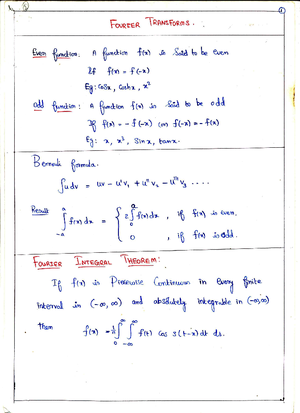 FOURIER TRANSFORMS.
Even function: A function f(x) is said to be even
If f(x) = f(-x)
Eg: cosx, coshx, x²
odd function: A function f(x) is said to be odd
If f(x) = -f(-x) (or) f(-x) = -f(x)
Eg: x, x³, sinx, tanx.
Bernouli formula.
∫u dv = uv - u'v₁ + u''v₂ - u'''v₃ ....
Result ∫₋ₐᵃ f(x) dx = { 2∫₀ᵃ f(x) dx , if f(x) is even.
0 , if f(x) is odd.
FOURIER INTEGRAL THEOREM:
If f(x) is Piecewise Continuous in every finite
interval in (-∞, ∞) and absolutely integrable in (-∞, ∞)
then f(x) = 1/π ∫₀^∞ ∫₋∞^∞ f(t) cos s(t-x) dt ds.